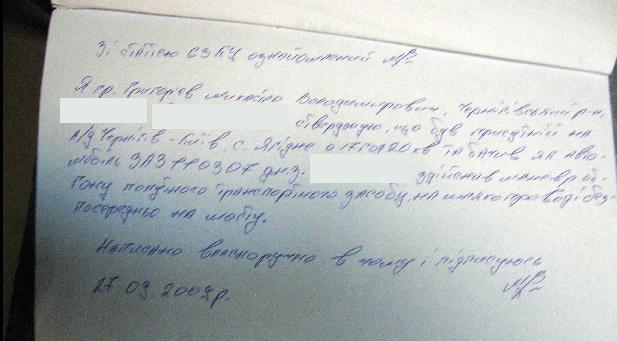 Зі статтею 63 КУ ознайомлений
Я гр. Григор'єв Михайло Володимирович, Чернігівський р-н,
стверджую, що був присутній на
а/д Чернігів - Київ, с. Ягідне о 17 год 20 хв та бачив як авто-
мобіль ЗАЗ 110307 д.н.з. здійснив маневр об-
гону попутного транспортного засобу, на шляхопроводі без-
посередньо на мосту.
Написано власноручно в чому і підписуюсь
27.09.2009р.